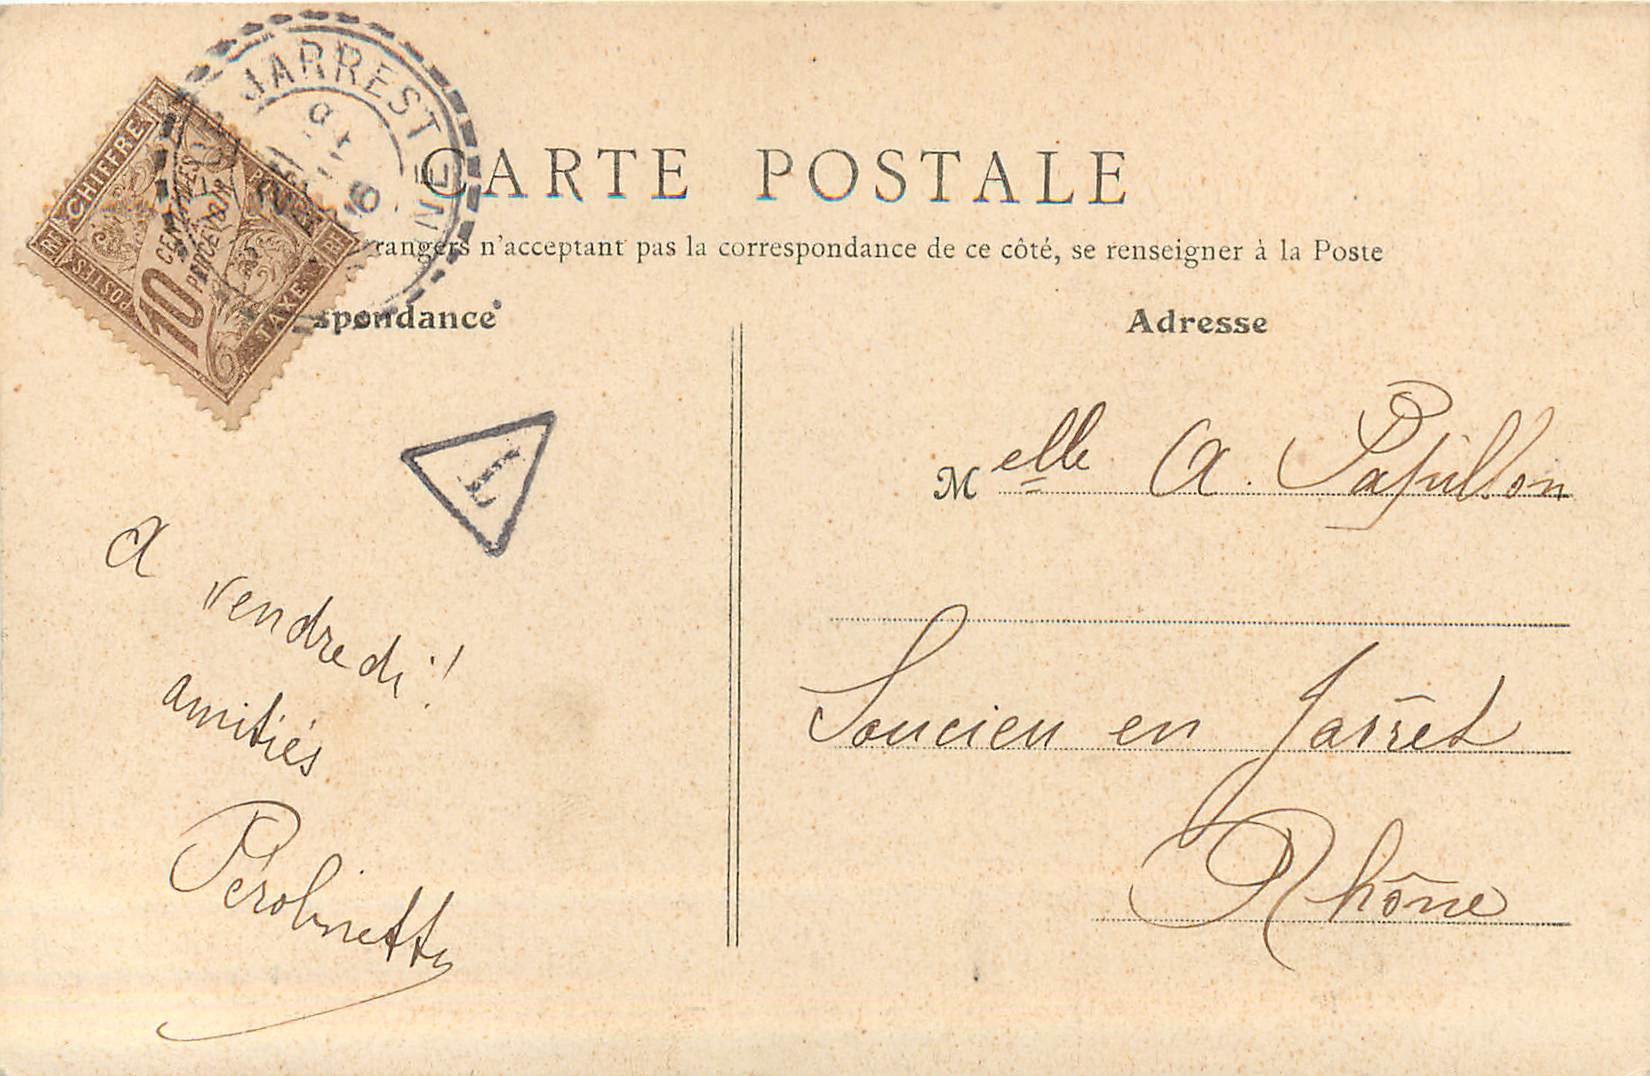 JARREST
CHIFFRE
CENTIMES
10
À PERCEVOIR
POSTES
TAXE
RF
CARTE POSTALE
rangers n'acceptant pas la correspondance de ce côté, se renseigner à la Poste
spondance
Adresse
T
Melle A. Papillon
Soucieu en Jarret
Rhône
A vendredi !
amitiés